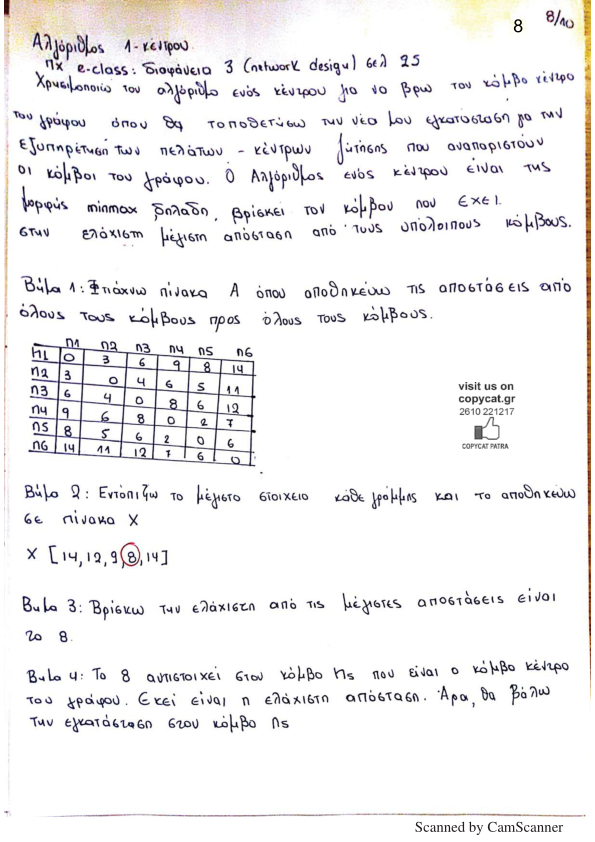 8/10
8
Αλγόριθμος 1-κέντρου
πχ e-class: διαφάνεια 3 (network design) σελ 25
Χρησιμοποιώ τον αλγόριθμο ενός κέντρου για να βρω τον κόμβο κέντρο
του γράφου όπου θα τοποθετήσω την νέα μου εγκατάσταση για την
εξυπηρέτηση των πελατών - κέντρων ζήτησης που αναπαριστούν
οι κόμβοι του γράφου. Ο Αλγόριθμος ενός κέντρου είναι της
μορφής minmax δηλαδη, βρίσκει τον κόμβου που έχει
στην ελάχιστη μέγιστη απόσταση από τους υπόλοιπους κόμβους.
Βήμα 1: Φτιάχνω πίνακα Α όπου αποθηκεύω τις αποστάσεις από
όλους τους κόμβους προς όλους τους κόμβους.
n1 n2 n3 n4 n5 n6
n1 0 3 6 9 8 14
n2 3 0 4 6 5 11
n3 6 4 0 8 6 12
n4 9 6 8 0 2 7
n5 8 5 6 2 0 6
n6 14 11 12 7 6 0
visit us on
copycat.gr
2610 221217
COPYCAT PATRA
Βήμα 2: Εντοπίζω το μέγιστο στοιχείο κάθε γραμμής και το αποθηκεύω
σε πίνακα Χ
X [14,12,9,8,14]
Βημα 3: Βρίσκω την ελάχιστη από τις μέγιστες αποστάσεις είναι
το 8.
Βημα 4: Το 8 αντιστοιχεί στον κόμβο n5 που είναι ο κόμβο κέντρο
του γράφου. Εκεί είναι η ελάχιστη απόσταση. Άρα, θα βάλω
την εγκατάσταση στον κόμβο n5
Scanned by CamScanner